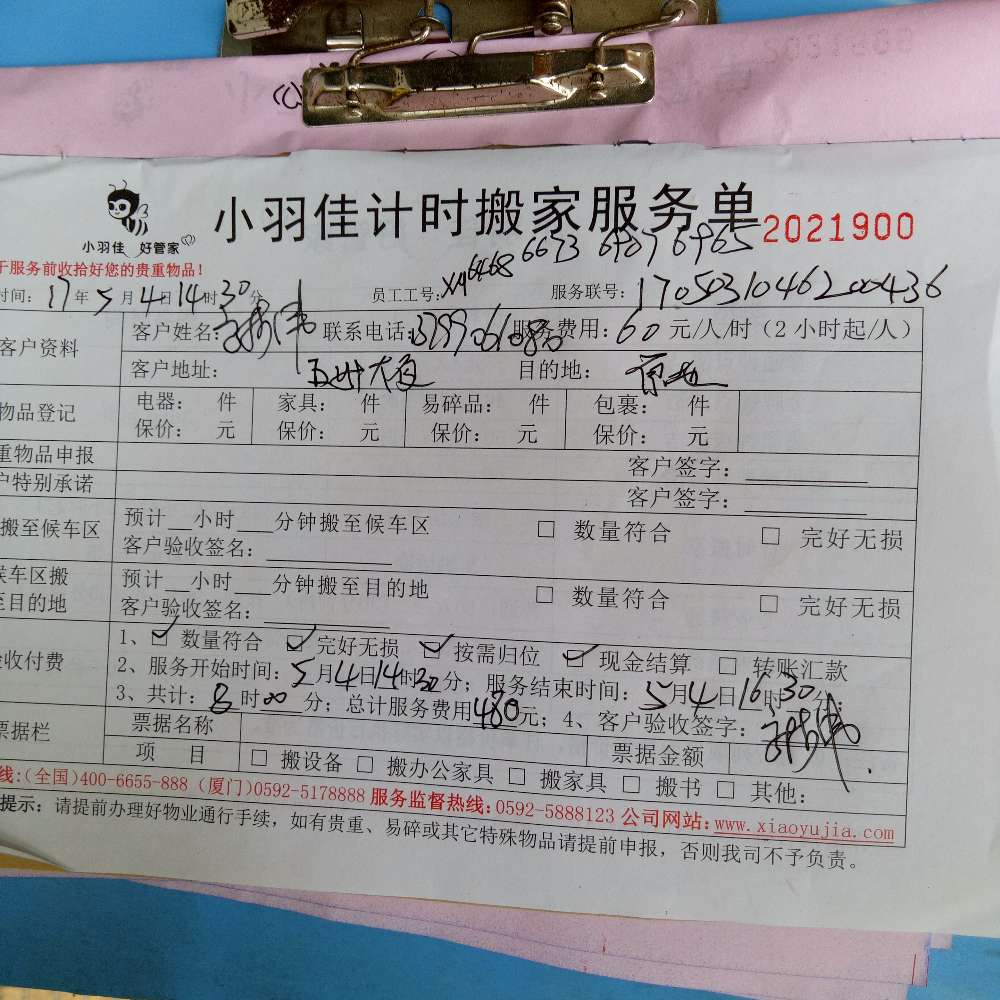 小羽佳计时搬家服务单
2021900
小羽佳 好管家
于服务前收拾好您的贵重物品!
时间: 17年5月4日14时30分 员工工号: 6468 6673 6907 6965 服务联号: 1705031046200436
客户资料
客户姓名: 联系电话: 服务费用: 60元/人/时(2小时起/人)
客户地址: 五洲大厦 目的地: 原地
物品登记
电器: 件 家具: 件 易碎品: 件 包裹: 件
保价: 元 保价: 元 保价: 元 保价: 元
重物品申报 客户签字:
户特别承诺 客户签字:
搬至候车区
预计__小时___分钟搬至候车区 □ 数量符合 □ 完好无损
客户验收签名:
候车区搬
至目的地
预计__小时___分钟搬至目的地 □ 数量符合 □ 完好无损
客户验收签名:
验收付费
1、☑ 数量符合 ☑ 完好无损 ☑ 按需归位 ☑ 现金结算 □ 转账汇款
2、服务开始时间: 5月4日14时30分; 服务结束时间: 5月4日16时30分;
3、共计: 8时00分; 总计服务费用480元; 4、客户验收签字:
票据栏
票据名称 票据金额
项 目 □ 搬设备 □ 搬办公家具 □ 搬家具 □ 搬书 □ 其他:
线:(全国)400-6655-888 (厦门)0592-5178888 服务监督热线:0592-5888123 公司网站:www.xiaoyujia.com
提示: 请提前办理好物业通行手续, 如有贵重、易碎或其它特殊物品请提前申报, 否则我司不予负责。